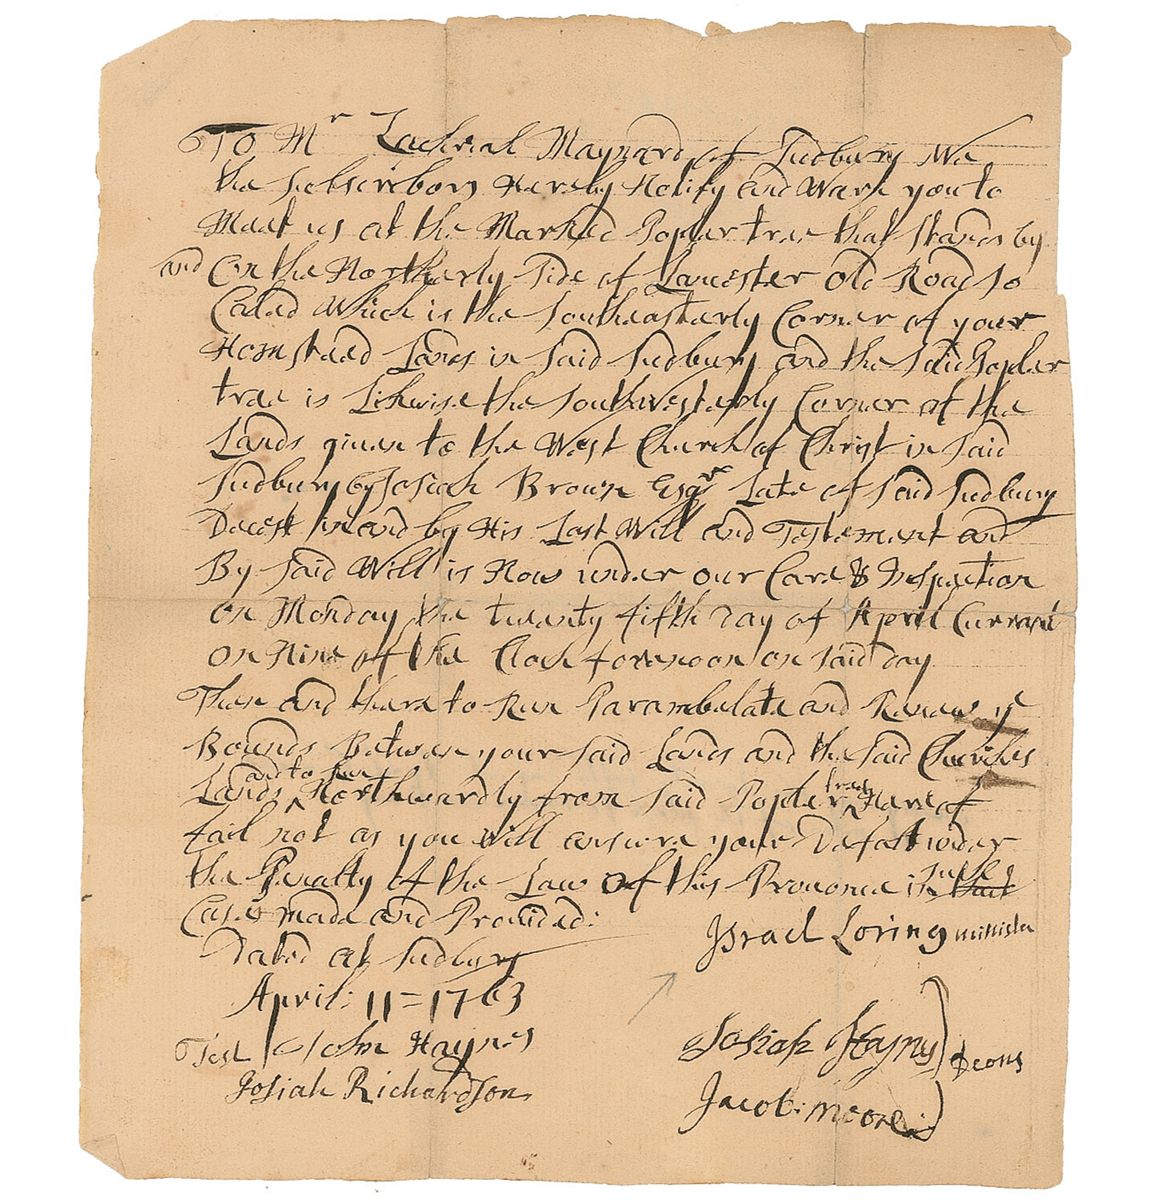 To Mr Zachriah Maynard of Sudbury We
the Subscribors Hereby Notify and Warn you to
Meet us at the Marked Popler tree that Stands by
and on the Northerly Side of Lancester Old Road So
Caled Which is the Southeasterly Corner of your
Homstead Lands in Said Sudbury and the Said Popler
tree is Likwise the Southwesterly Corner of the
Lands given to the West Church of Christ in Said
Sudbury by Josiah Brown Esqr Late of Said Sudbury
Decest in and by His Last Will and Testement and
By Said Will is Now under our Care & Inspection
on Monday the twenty fifth Day of April Currant
on Nine of the Clock forenoon on Said day
Then and there to Run Parambelate and Renew ye
Bounds Betwen your Said Lands and the Said Churches
Lands and to run Northwardly from Said Popler tree Hereof
fail not as you Will answre your Defalt under
the Penalty of the Law of this Provonce in such that
Cases made and Provided:
Dated at Sudbury
April: 11 = 1763
Israel Loring minister
Test John Haynes
Josiah Richardson
Josiah Haynes
Jacob: Moore
Deons